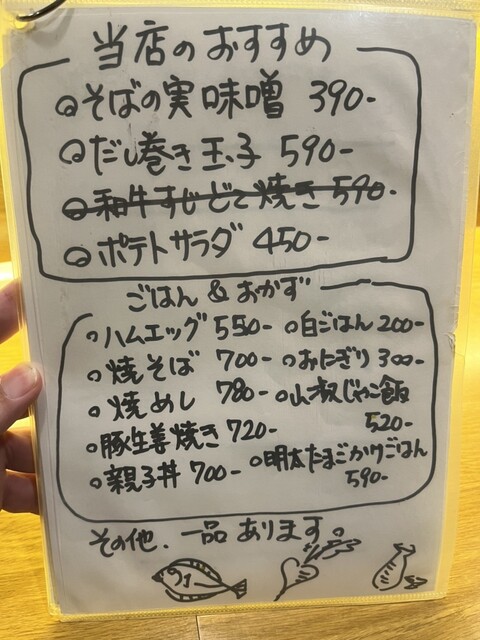 当店のおすすめ
そばの実味噌 390-
だし巻き玉子 590-
和牛すじどて焼き 590-
ポテトサラダ 450-
ごはん & おかず
ハムエッグ 550-
焼そば 700-
焼めし 780-
豚生姜焼き 720-
親子丼 700-
白ごはん 200-
おにぎり 300-
山椒じゃこ飯
520-
明太たまごかけごはん
590-
その他、一品あります。